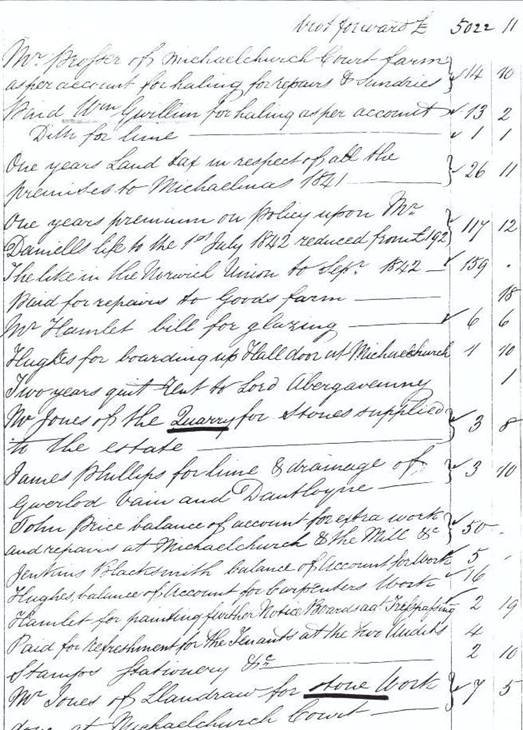 Brot forward £ 5022 11
Mr Prosser of Michaelchurch Court farm
as per account for haling for repairs & Sundries 14 10
Wm Gwillim for haling as per account 13 2
Ditto for lime 1 1
One years Land tax in respect of all the
premises to Michaelmas 1841 26 11
One years premium on policy upon Mr
Daniells life to the 1st July 1842 reduced from £192 117 12
The like in the Norwich Union to Septr 1842 159 -
Paid for repairs to Goods farm 18
Mr Hamlet bill for glazing 6 6
Hughes for boarding up Hall door at Michaelchurch 1 10
Two years quit Rent to Lord Abergavenny 1
Mr Jones of the Quarry for Stones supplied
to the estate 3 8
James Phillips for lime & drainage of
Gwerlod Vain and 3 10
John Price balance of account for extra work
and repairs at Michaelchurch & the Mill &c 50 -
Jenkins Blacksmith balance of Account for Work 5 -
Hughes, balance of Account for Carpenters Work 16
Hamlet for painting further Notice Boards aat Trespassing 2 19
Paid for Refreshment for the Tenants at the two Audits 4
Stamps Stationery &c 2 10
Mr Jones of Llandraw for stone Work 7 5
done at Michaelchurch Court